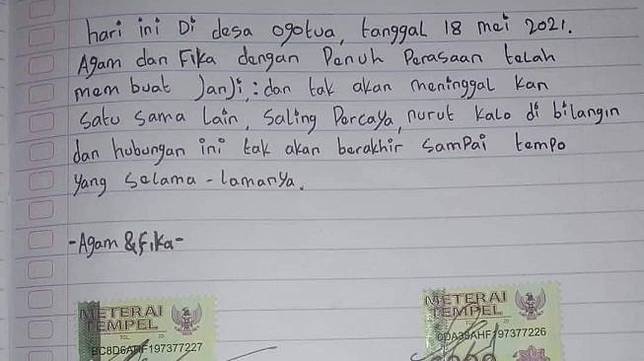 hari ini Di desa ogotua, tanggal 18 mei 2021.
Agam dan Fika dengan Penuh Perasaan telah
membuat Janji : dan tak akan meninggal kan
satu sama lain, saling Percaya, nurut kalo di bilangin
dan hubungan ini tak akan berakhir sampai tempo
yang selama - lamanya.
- Agam & Fika -
METERAI
TEMPEL
METERAI
TEMPEL
197377227
197377226